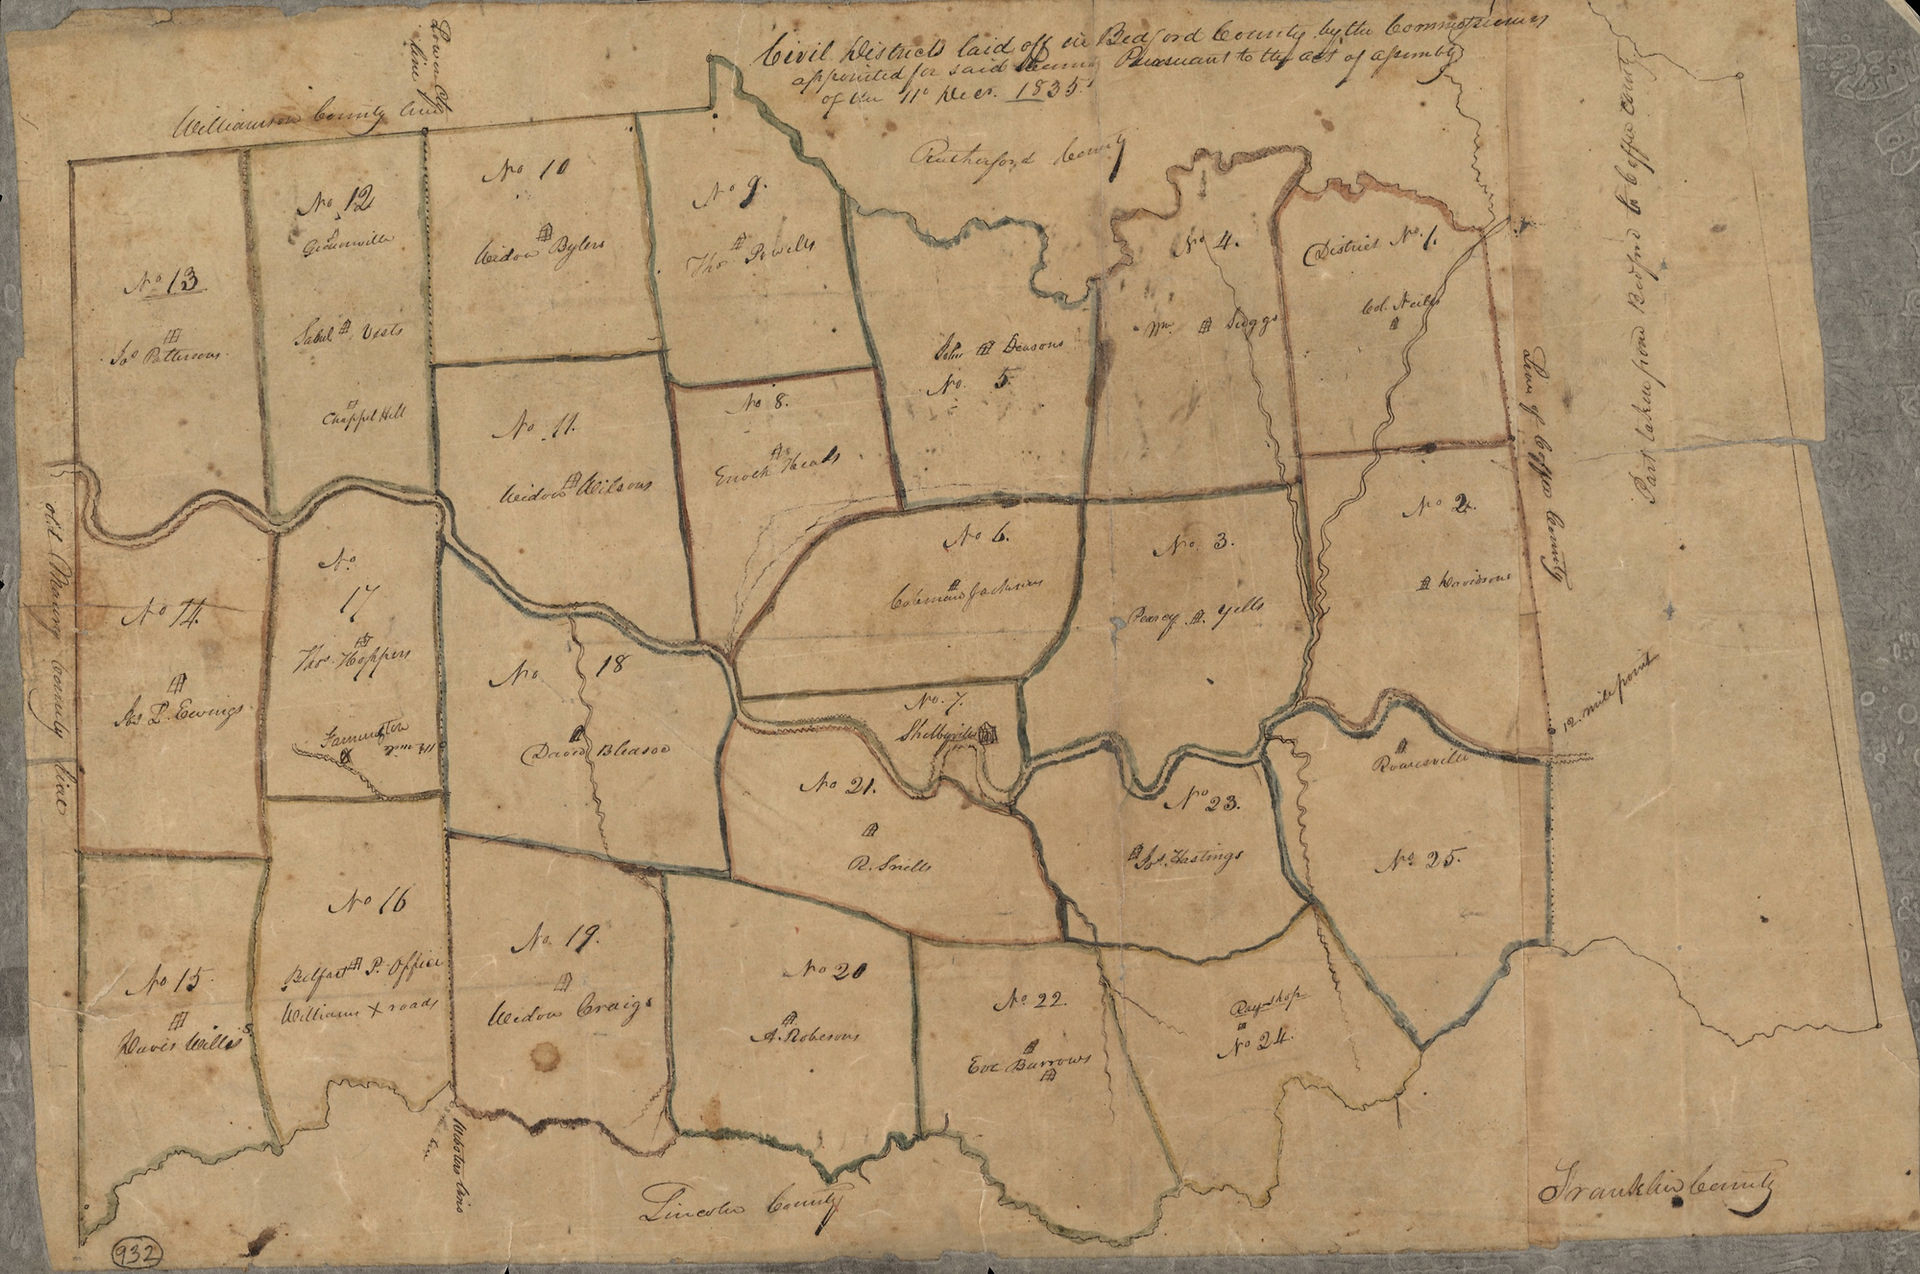 Civil Districts laid off in Bedford County by the Commissioners
appointed for said County Pursuant to the act of assembly
of the 11th Decr. 1835
Williamson County line
line
Rutherford County
No 13
Jas Pattersons
No 12
Vests
Chappel Hill
No 10
Widow Bylers
No 9.
Thos Powells
No 4.
Wm. Suggs
District No. 1.
Col. Neills
John Deasons
No. 5
No 11.
Widow Wilsons
No 8.
Enoch Heads
No 2.
Davidsons
No 6.
Coleman Jacksons
No. 3.
Pearcy Yells
Line of Coffee County
Part taken from Bedford to Coffee County
old Maury County line
No 14.
Jas P. Ewings
No.
17
Thos. Hoppers
Farmington
No. 18
David Bleasoe
No. 7.
Shelbyville
12. mile point
Rowesville
No 21.
R. Snells
No 23.
Jos. Hastings
No 25.
No 16
Belfast P. Office
Williams X roads
No. 19.
Widow Craigs
No 20
A. Robesons
No 15.
Davis Wills
No. 22.
Eoc Burrows
Rayshop
No 24.
Lincoln County
Franklin County
932